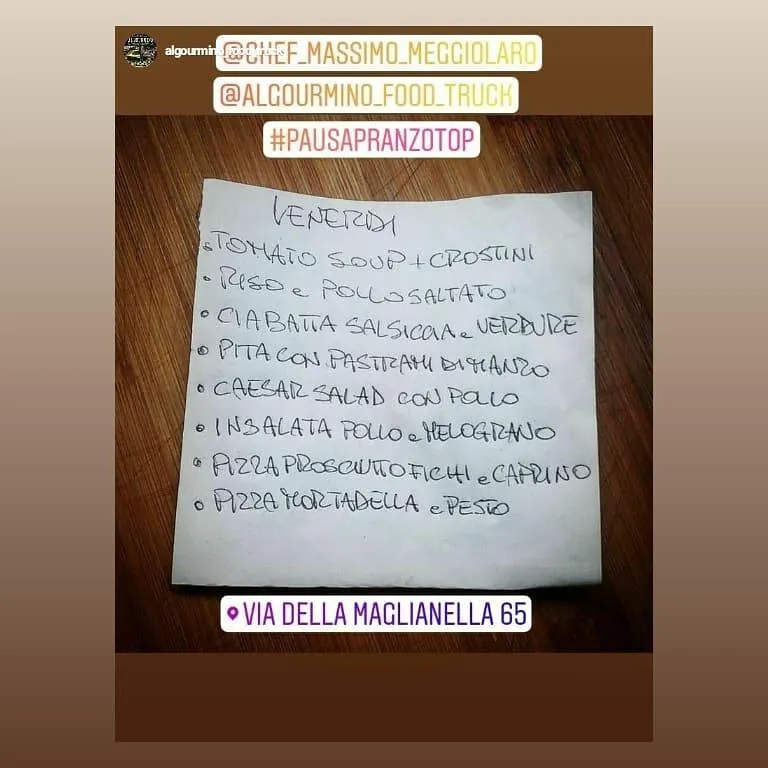 @CHEF_MASSIMO_MEGGIOLARO
@ALGOURMINO_FOOD_TRUCK
#PAUSAPRANZOTOP
VENERDI
TOMATO SOUP + CROSTINI
RISO e POLLO SALTATO
CIABATTA SALSICCIA e VERDURE
PITA CON PASTRAMI DI MANZO
CAESAR SALAD CON POLLO
INSALATA POLLO e MELOGRANO
PIZZA PROSCIUTTO FICHI e CAPRINO
PIZZA MORTADELLA e PESTO
VIA DELLA MAGLIANELLA 65